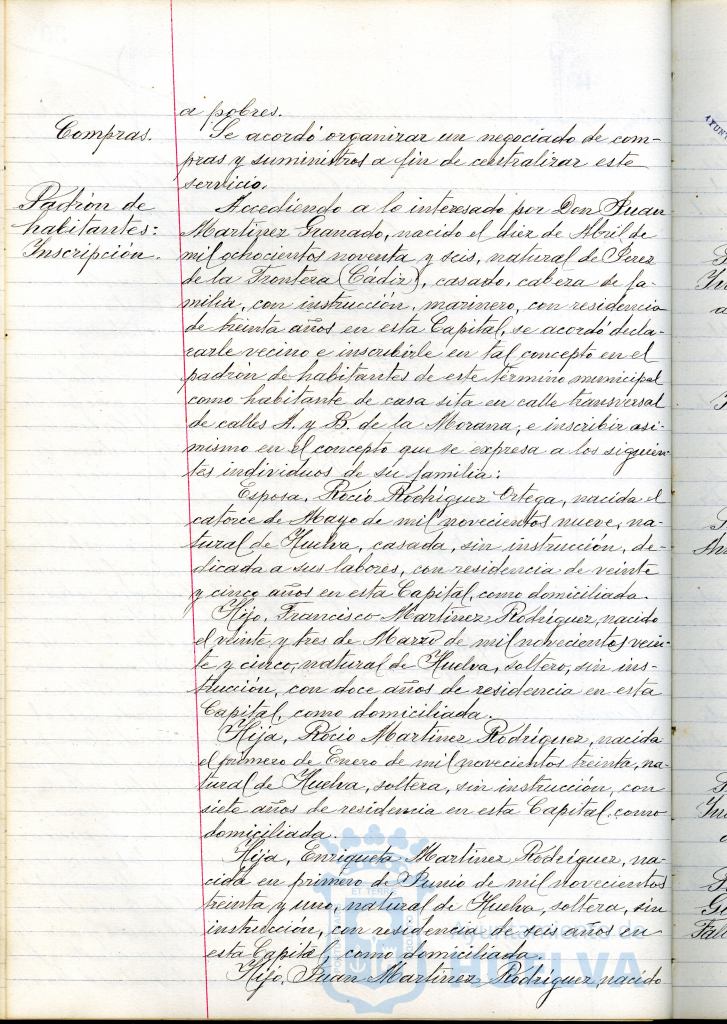 a pobres.
Compras.
Se acordó organizar un negociado de com-
pras y suministros a fin de centralizar este
servicio.
Padrón de
habitantes:
Inscripción.
Accediendo a lo interesado por Don Juan
Martinez Granado, nacido el diez de Abril de
mil ochocientos noventa y seis, natural de Jerez
de la Frontera (Cádiz), casado, cabeza de fa-
milia, con instrucción, marinero, con residencia
de treinta años en esta Capital, se acordó decla-
rarle vecino e inscribirle en tal concepto en el
padrón de habitantes de este término municipal
como habitante de casa sita en calle transversal
de calles A. y B. de la Morana, e inscribir asi-
mismo en el concepto que se expresa a los siguien-
tes individuos de su familia:
Esposa, Rocío Rodríguez Ortega, nacida el
catorce de Mayo de mil novecientos nueve, na-
tural de Huelva, casada, sin instrucción, de-
dicada a sus labores, con residencia de veinte
y cinco años en esta Capital, como domiciliada.
Hijo, Francisco Martinez Rodríguez, nacido
el veinte y tres de Marzo de mil novecientos vein-
te y cinco, natural de Huelva, soltero, sin ins-
trucción, con doce años de residencia en esta
Capital, como domiciliada.
Hija, Rocio Martinez Rodriguez, nacida
el primero de Enero de mil novecientos treinta, na-
tural de Huelva, soltera, sin instrucción, con
siete años de residencia en esta Capital, como
domiciliada.
Hija, Enriqueta Martinez Rodríguez, na-
cida en primero de Junio de mil novecientos
treinta y uno, natural de Huelva, soltera, sin
instrucción, con residencia de seis años en
esta Capital, como domiciliada.
Hijo, Juan Martinez Rodríguez, nacido
HUELVA